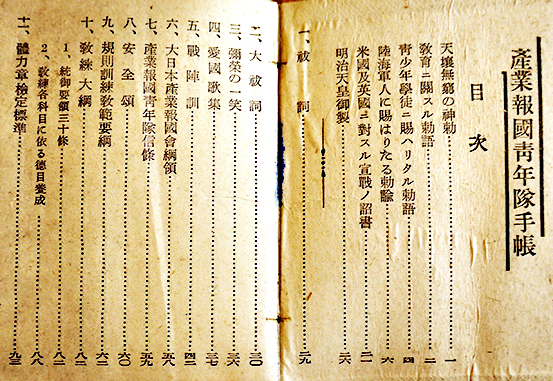 產業報國靑年隊手帳
目次
天壤無窮の神勅 一
敎育ニ關スル勅語 二
靑少年學徒ニ賜ハリタル勅語 四
陸海軍人に賜はりたる勅諭 六
米國及英國ニ對スル宣戰ノ詔書 二一
明治天皇御製 二六
一、祓詞 二九
二、大祓詞 三〇
三、彌榮の一笑 三六
四、愛國歌集 三七
五、戰陣訓 四二
六、大日本產業報國會綱領 五八
七、產業報國靑年隊信條 五九
八、安全頌 六〇
九、規則訓練敎範要綱 六二
十、敎練大綱 八二
1、統御要領三十條 八二
2、敎練各科目に依る德目養成 八八
十一、體力章檢定標準 九三